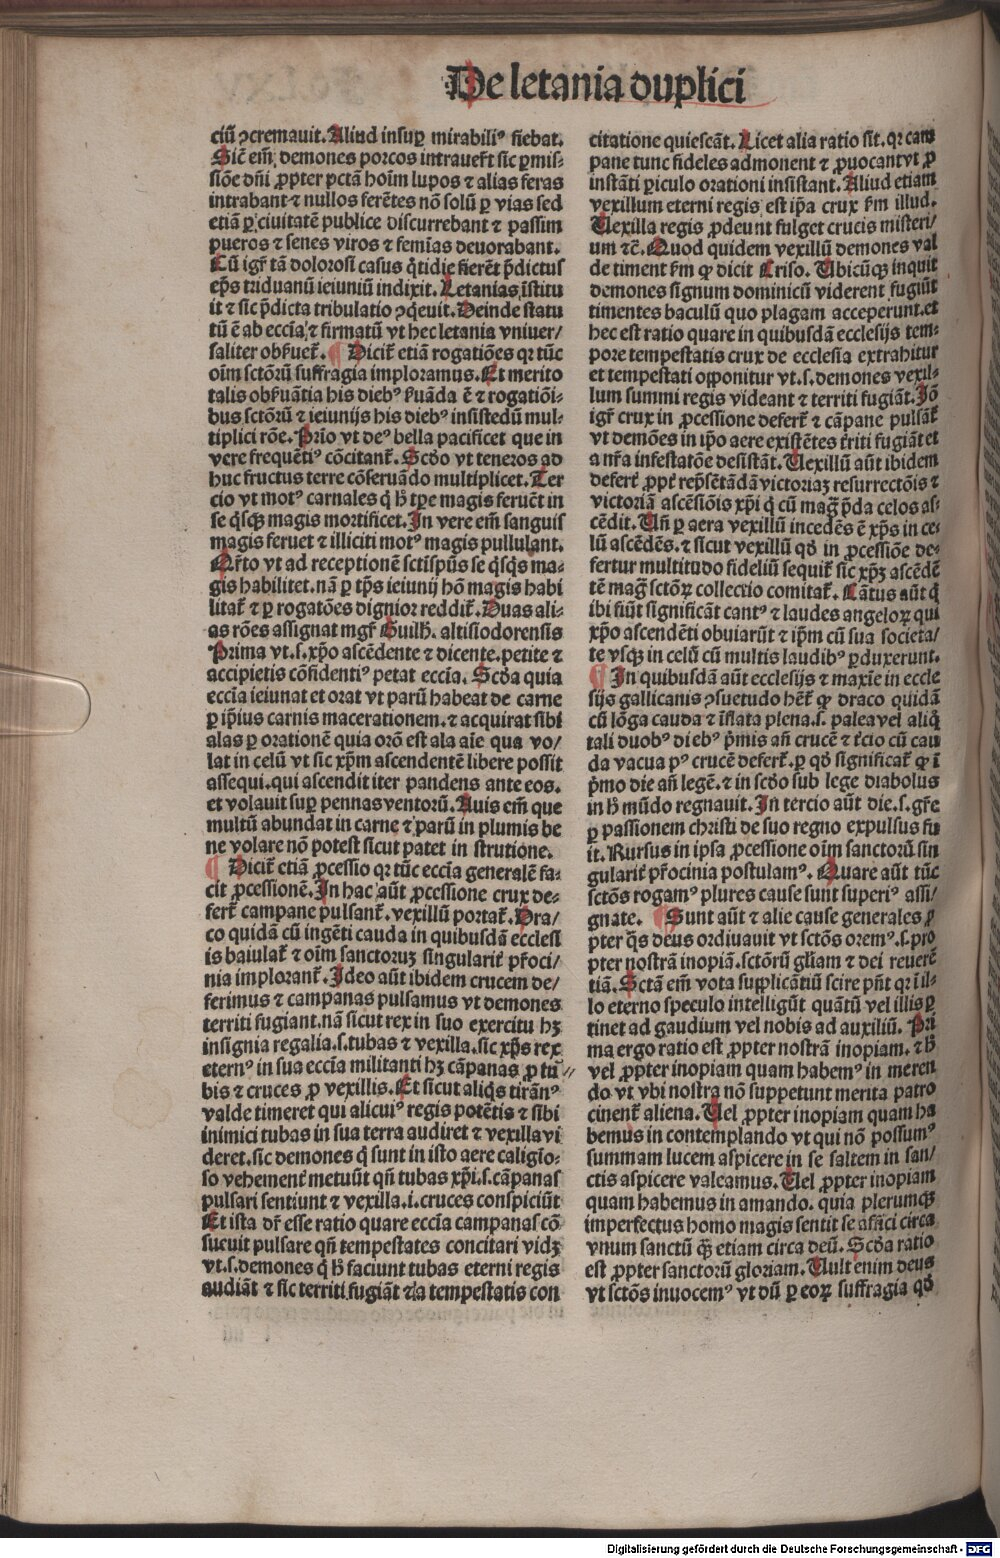 De letania duplici
ciū ↄcremauit. Aliud insuꝑ mirabiliꝰ fiebat.
Sic̄ em̄ demones porcos intrauer̄t sic ꝑmis-
siōe dn̄i ꝓpter pctā hoīm lupos ⁊ alias feras
intrabant ⁊ nullos ferētes nō solū ꝑ vias sed
etiā ꝑ ciuitatē publice discurrebant ⁊ passim
pueros ⁊ senes viros ⁊ femīas deuorabant.
Cū igr̄ tā dolorosi casus q̄tidie fierēt p̄dictus
ep̄s triduanū ieiuniū indixit. Letanias īstitu
it ⁊ sic p̄dicta tribulatio ↄq̄euit. Deinde statu
tū ē ab eccīa ⁊ firmatū vt hec letania vniuer/
saliter obẜuet̄. ¶ Dicit̄ etiā rogatiōes qꝛ tūc
oīm sctōrū suffragia imploramus. Et merito
talis obẜuātia his diebꝰ ẜuāda ē ⁊ rogatiōi-
bus sctōrū ⁊ ieiunijs his diebꝰ insistēdū mul-
tiplici rōe. Prīo vt deꝰ bella pacificet que in
vere frequētiꝰ cōcitant̄. Scd̄o vt teneros ad
huc fructus terre cōseruādo multiplicet. Ter
cio vt motꝰ carnales q̄ h̄ tꝑe magis feruēt in
se q̄sqꝫ magis mortificet. In vere em̄ sanguis
magis feruet ⁊ illiciti motꝰ magis pullulant.
Qr̄to vt ad receptionē sctispūs se q̄sqs ma-
gis habilitet. nā ꝑ tp̄s ieiunij hō magis habi
litat̄ ⁊ ꝑ rogatōes dignior reddit̄. Duas ali-
as rōes assignat mgr̄ Guilh̄. altisiodorensis
Prima vt .s. xp̄o ascēdente ⁊ dicente. petite ⁊
accipietis cōfidentiꝰ petat eccīa. Scd̄a quia
eccīa ieiunat et orat vt parū habeat de carne
ꝑ ip̄ius carnis macerationem. ⁊ acquirat sibi
alas ꝑ orationē quia orō est ala aīe qua vo/
lat in celū vt sic xp̄m ascendentē libere possit
assequi. qui ascendit iter pandens ante eos.
et volauit suꝑ pennas ventorū. Auis em̄ que
multū abundat in carne ⁊ parū in plumis be
ne volare nō potest sicut patet in strutione.
¶ Dicit̄ etiā ꝓcessio qꝛ tūc eccīa generalē fa-
cit ꝓcessionē. In hac aūt ꝓcessione crux de-
fert̄ campane pulsant̄. vexillū portat̄. Dra/
co quidā cū ingēti cauda in quibusdā ecclesi
is baiulat̄ ⁊ oīm sanctoruꝫ singularit̄ pr̄oci-
nia implorant̄. Ideo aūt ibidem crucem de/
ferimus ⁊ campanas pulsamus vt demones
territi fugiant. nā sicut rex in suo exercitu hꝫ
insignia regalia .s. tubas ⁊ vexilla. sic xp̄s rex
eternꝰ in sua eccīa militanti hꝫ cāpanas ꝓ tu
bis ⁊ cruces ꝓ vexillis. Et sicut aliq̄s tirānꝰ
valde timeret qui alicuiꝰ regis potētis ⁊ sibi
inimici tubas in sua terra audiret ⁊ vexilla vi
deret. sic demones q̄ sunt in isto aere caligīo-
so vehement̄ metuūt qn̄ tubas xp̄i .s. cāpanas
pulsari sentiunt ⁊ vexilla .i. cruces conspiciūt
Et ista dr̄ esse ratio quare eccīa campanas cō
sueuit pulsare qn̄ tempestates concitari vidꝫ
vt .s. demones q̄ h̄ faciunt tubas eterni regis
audiāt ⁊ sic territi fugiāt ⁊ a tempestatis con
citatione quiescāt. Licet alia ratio sit. qꝛ cam
pane tunc fideles admonent ⁊ ꝓuocant vt ꝓ
instāti ꝑiculo orationi insistant. Aliud etiam
vexillum eterni regis est ip̄a crux ẜm illud.
Uexilla regis ꝓdeunt fulget crucis misteri/
um ⁊c̄. Quod quidem vexillū demones val
de timent ẜm ꝙ dicit Criso. Ubicūqꝫ inquit
demones signum dominicū viderent fugiūt
timentes baculū quo plagam acceperunt. et
hec est ratio quare in quibusdā ecclesijs tem-
pore tempestatis crux de ecclesia extrahitur
et tempestati opponitur vt .s. demones vexil-
lum summi regis videant ⁊ territi fugiāt. Iō
igr̄ crux in ꝓcessione defert̄ ⁊ cāpane pulsāt̄
vt demōes in ip̄o aere existētes t̄riti fugiāt et
a nr̄a infestatōe desistāt. Uexillū aūt ibidem
defert̄ ꝓpt̄ rep̄sētādā victoriaꝫ resurrectōis ⁊
victoriā ascēsiōis xp̄i q̄ cū maḡ p̄da celos as-
cēdit. Un̄ ꝑ aera vexillū incedēs ē xp̄s in ce-
lū ascēdēs. ⁊ sicut vexillū qd̄ in ꝓcessiōe de-
fertur multitudo fideliū sequit̄ sic xp̄ꝫ ascēdē
tē maḡ sctōꝝ collectio comitat̄. Cātus aūt q̄
ibi fiūt significāt cantꝰ ⁊ laudes angeloꝝ qui
xp̄o ascendēti obuiarūt ⁊ ip̄m cū sua societa/
te vsqꝫ in celū cū multis laudibꝰ ꝑduxerunt.
¶ In quibusdā aūt ecclesijs ⁊ maxīe in eccle
sijs gallicanis ↄsuetudo hēt̄ ꝙ draco quidā
cū lōga cauda ⁊ īflata plena .s. palea vel aliq̄
tali duobꝰ diebꝰ p̄mis an̄ crucē ⁊ t̄cio cū cau
da vacua pꝰ crucē defert̄. ꝑ qd̄ significat̄ ꝙ ī
p̄mo die an̄ legē. ⁊ in scd̄o sub lege diabolus
in h̄ mūdo regnauit. In tercio aūt die .s. gr̄e
ꝑ passionem christi de suo regno expulsus fu
it. Rursus in ipsa ꝓcessione oīm sanctorū sin
gularit̄ pr̄ocinia postulamꝰ. Quare aūt tūc
sctōs rogamꝰ plures cause sunt superiꝰ assi/
gnate. ¶ Sunt aūt ⁊ alie cause generales ꝓ
pter q̄s deus ordiuauit vt sctōs oremꝰ .s. pro
pter nostrā inopiā. sctōrū gl̄iam ⁊ dei reuerē
tiā. Sctā em̄ vota supplicātiū scire pn̄t qꝛ ī il-
lo eterno speculo intelligūt quātū vel illis ꝑ
tinet ad gaudium vel nobis ad auxiliū. Pri
ma ergo ratio est ꝓpter nostrā inopiam. ⁊ h̄
vel ꝓpter inopiam quam habemꝰ in meren
do vt vbi nostra nō suppetunt merita patro
cinent̄ aliena. Uel ꝓpter inopiam quam ha
bemus in contemplando vt qui nō possumꝰ
summam lucem aspicere in se saltem in san/
ctis aspicere valeamus. Uel ꝓpter inopiam
quam habemus in amando. quia plerumqꝫ
imperfectus homo magis sentit se affici circa
vnum sanctū qꝫ̄ etiam circa deū. Scd̄a ratio
est ꝓpter sanctorū gloriam. Uult enim deus
vt sctōs inuocemꝰ vt dū ꝑ eoꝝ suffragia qd̄
Digitalisierung gefördert durch die Deutsche Forschungsgemeinschaft - DFG